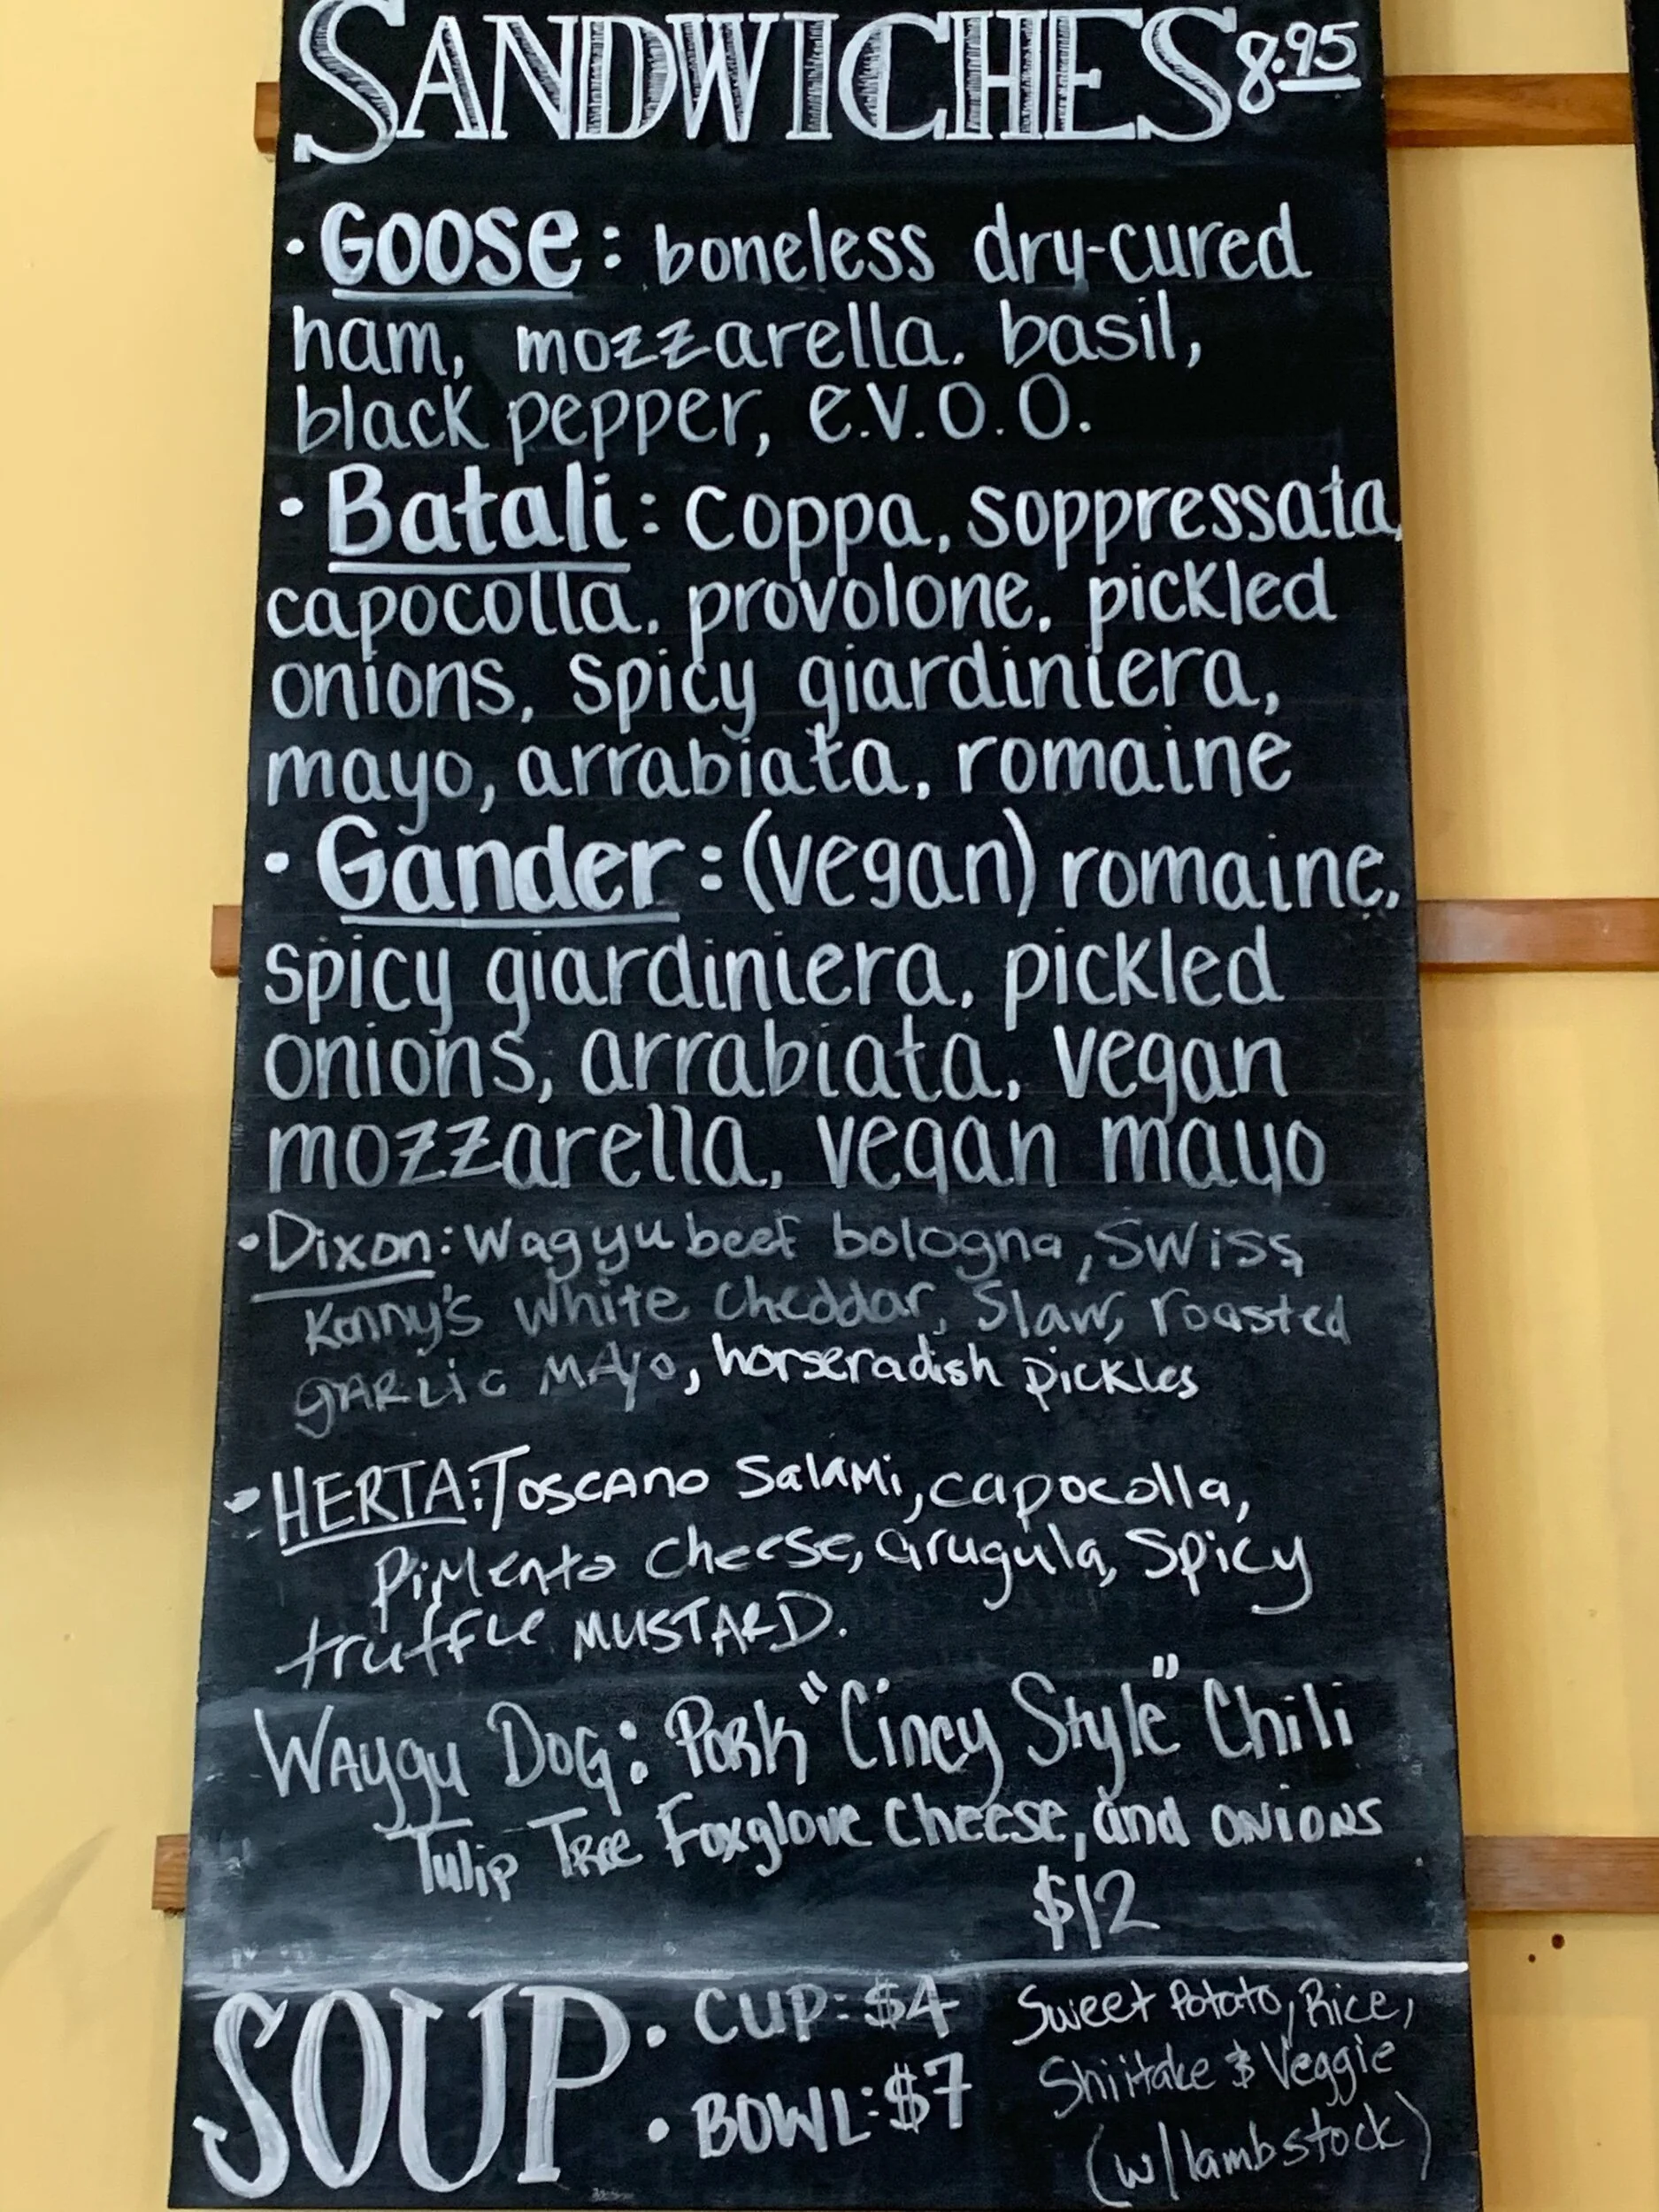 SANDWICHES 8.95
• Goose: boneless dry-cured
ham, mozzarella. basil,
black pepper, e.v.o.o.
• Batali: coppa, soppressata,
capocolla. provolone. pickled
onions, spicy giardiniera,
mayo, arrabiata, romaine
• Gander: (vegan) romaine,
spicy giardiniera, pickled
onions, arrabiata, vegan
mozzarella, vegan mayo
• Dixon: Wagyu beef bologna, Swiss,
Kenny's White Cheddar, Slaw, roasted
gARLic MAyo, horseradish pickles
• HERTA: Toscano Salami, capocolla,
PiMento Cheese, arugula, Spicy
truffle MUSTARD.
Waygu Dog: Pork "Cincy Style" Chili
Tulip Tree Foxglove Cheese, and onions
$12
SOUP • CUP: $4 Sweet Potato, Rice,
• BOWL: $7 Shiitake & Veggie
(w/lambstock)